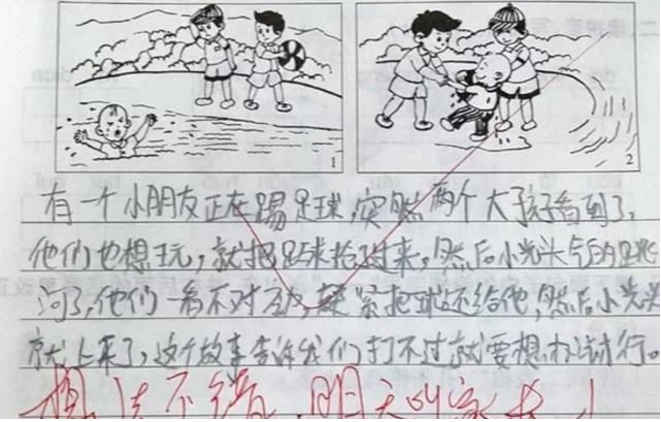 1
2
有一个小朋友正在踢足球,突然两个大孩子看到了,
他们也想玩,就把足球抢过来,然后小光头气的跳
河了,他们一看不对劲,赶紧把球还给他,然后小光头
就上来了,这个故事告诉我们打不过就要想办法才行。
想法不错,明天叫家长!